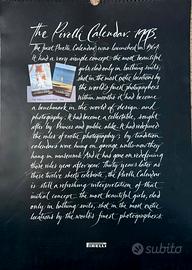 The Pirelli Calendar. 1995.
The first Pirelli Calendar was launched in 1964.
It had a very simple concept - the most beautiful
girls, clad only in bathing suits,
shot in the most exotic locations
by the world's finest photographers.
Within months it had become
a benchmark in the world of design and
photography. It had become a collectable, sought
after by Princes and public alike. It had redefined
the rules of erotic photography; by tradition
calendars were hung on garage walls - now they
hung in museums. And it has gone on redefining
those rules year after year. Thirty years later as
these twelve sheets celebrate, the Pirelli Calendar
is still a refreshing interpretation of that
initial concept - the most beautiful girls, clad
only in bathing suits, shot in the most exotic
locations by the world's finest photographers.
PIRELLI
subito